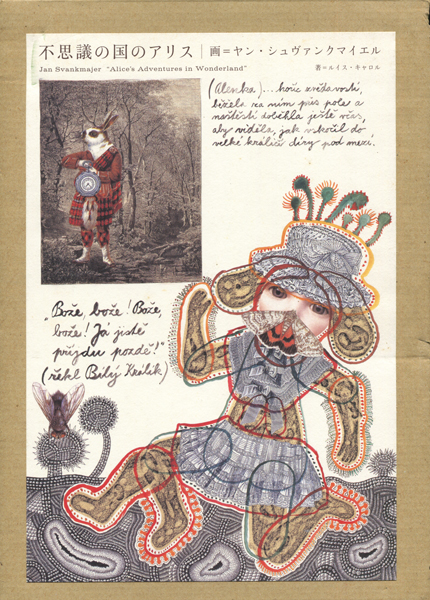 不思議の国のアリス｜画=ヤン・シュヴァンクマイエル
Jan Svankmajer "Alice's Adventures in Wonderland"
著=ルイス・キャロル
(Alenka)... hoře zvědavostí,
běžela za ním přes pole a
naštěstí doběhla ještě včas,
aby viděla, jak vskočil do
velké králičí díry pod mezí.
„Bože, bože! Bože,
bože! Já jistě
přijdu pozdě!"
(řekl Bílý Králík)